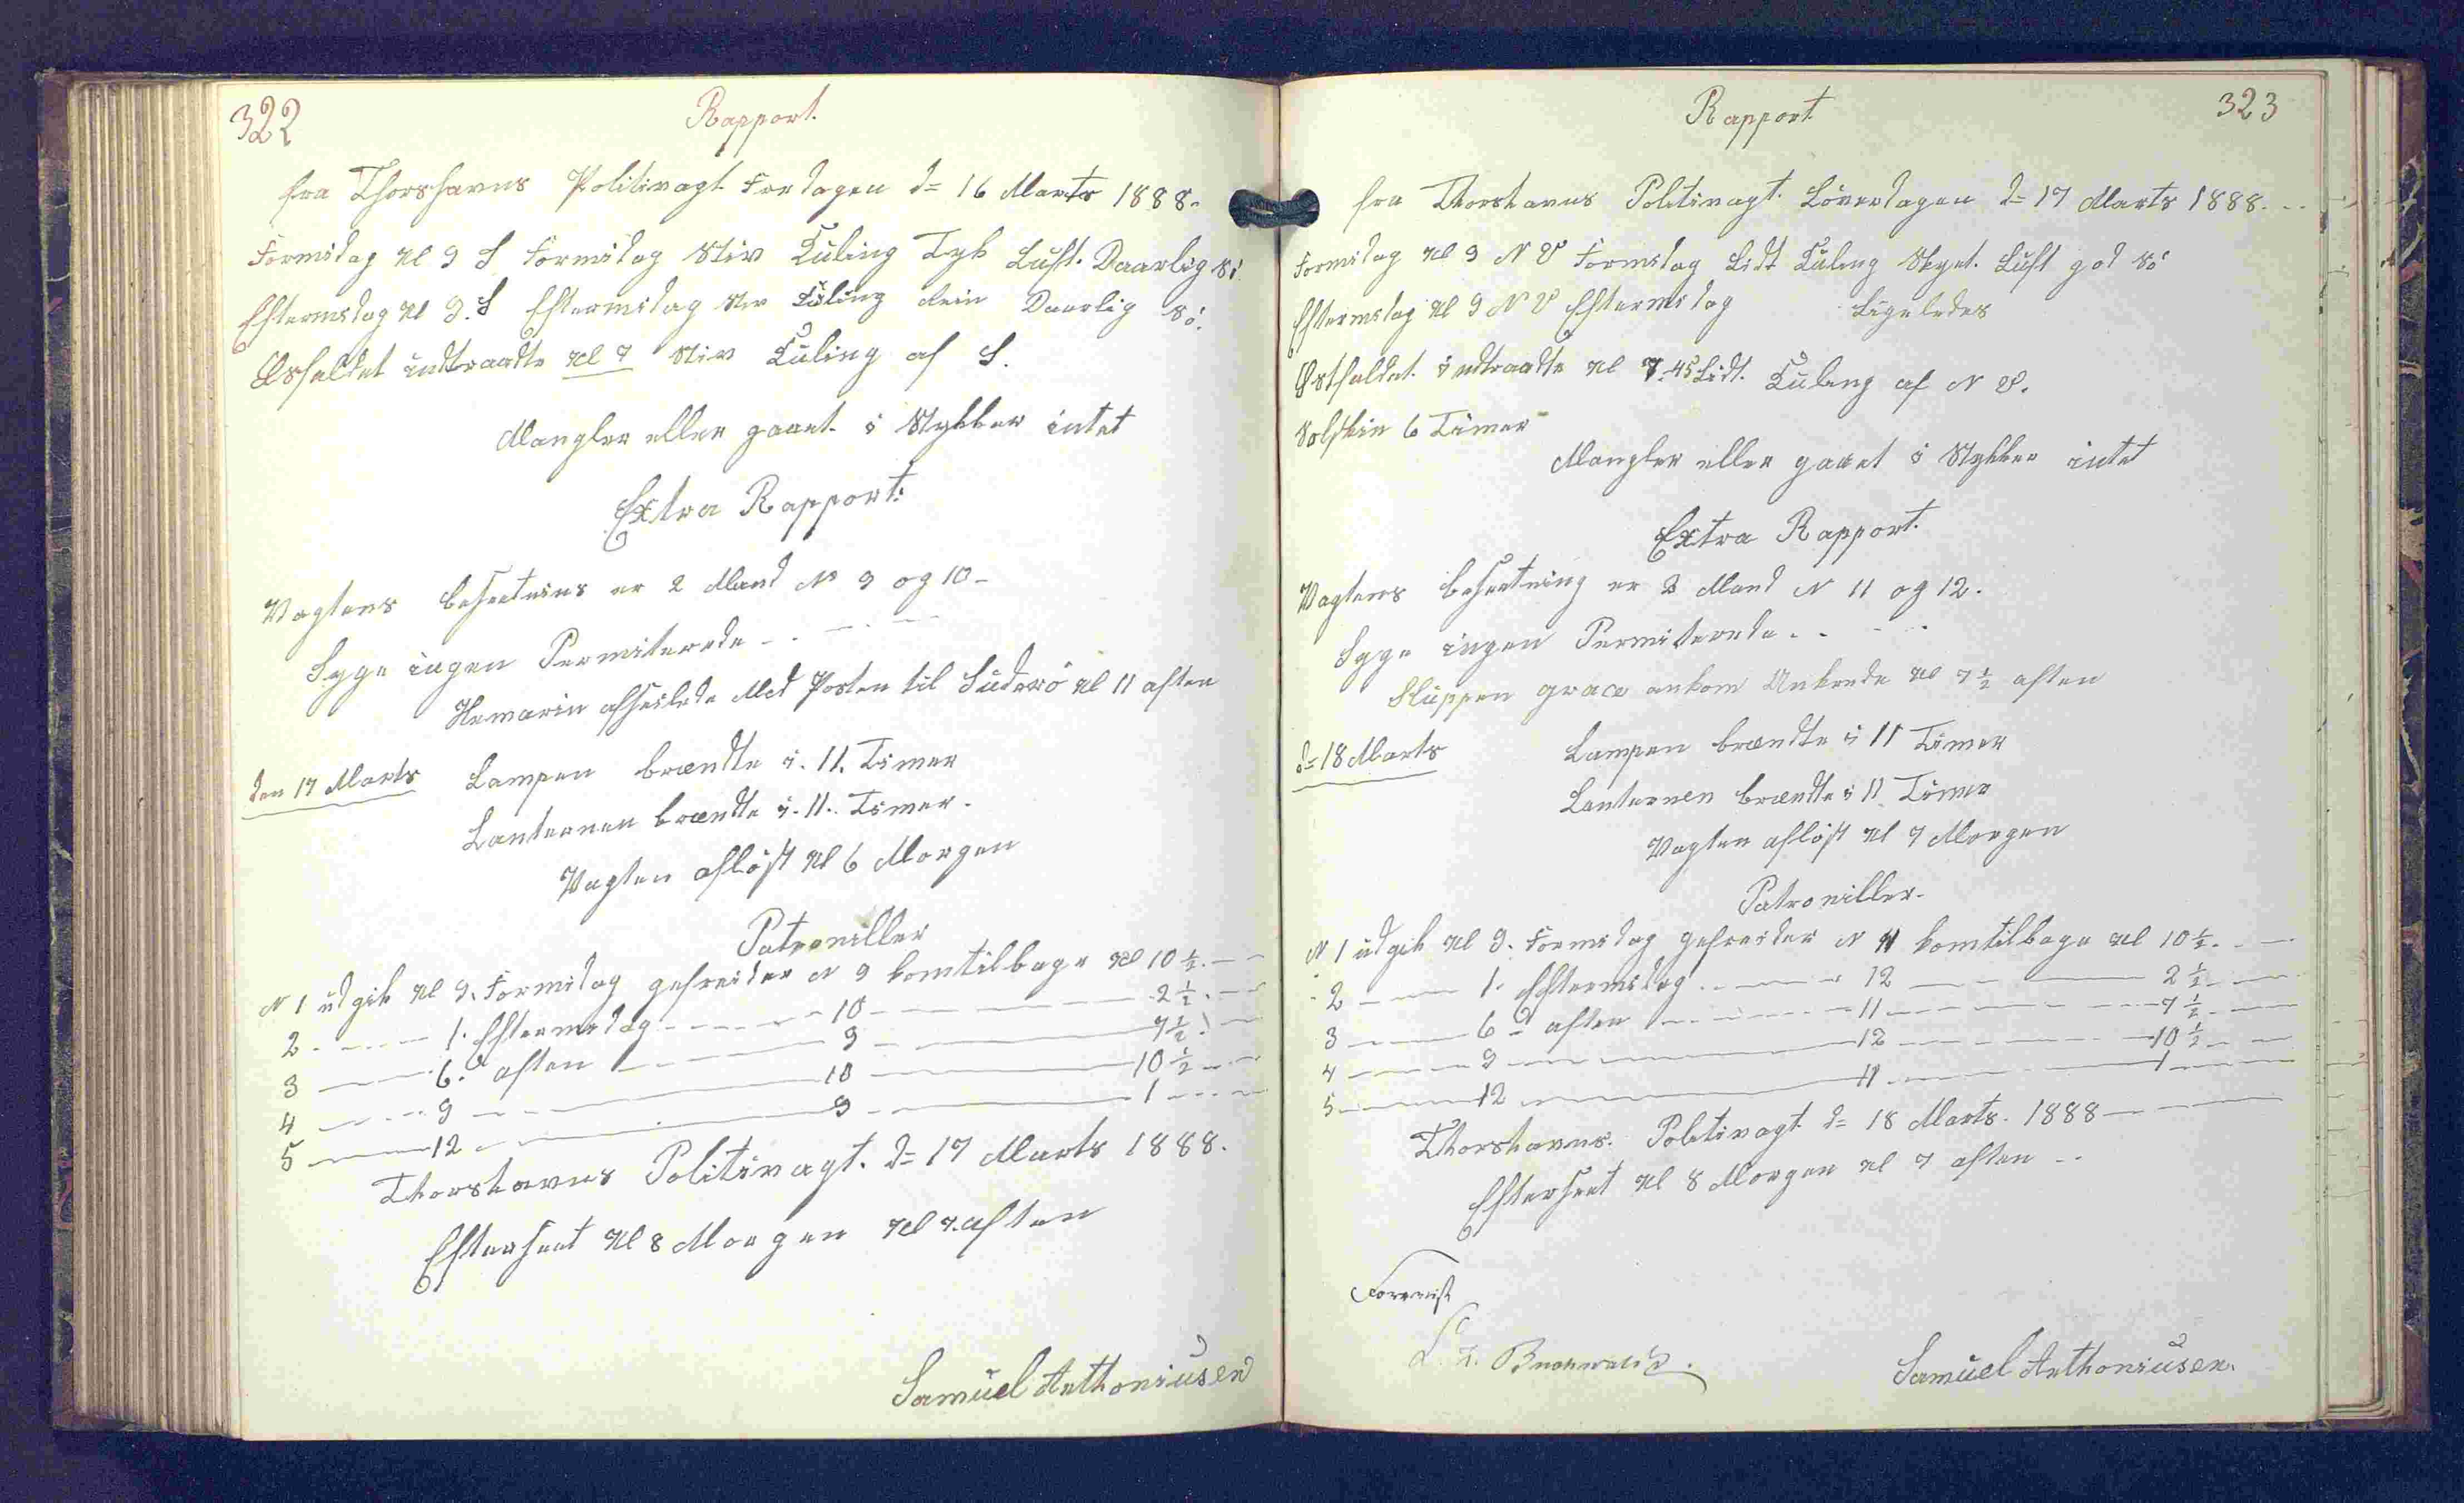 322
Rapport.
fra Thorshavns Politivagt Fredagen d= 16 Marts 1888.
Formidag Kl 9 S Formidag Stiv Kuling Tyk Luft. Daarlig Sö.
Eftermidag Kl 9. S Eftermidag Stiv Kuling Rein Daarlig Sö.
indtraadte Kl 7 Stiv Kuling af S.
Mangler eller gaaet i Stykker intet
Extra Rapport:
Vagtens besætning er 2 Mand No 9 og 10 -
Syge ingen Permiterede - . - . -
afseilede Med Posten til Suderö Kl 11 aften
den 17 Marts Lampen brændte i. 11. Timer
Lanternen brændte i. 11. Timer.
Vagten aflöst Kl 6 Morgen
Patroniller
N 1 udgik Kl 9. Formidag gefreider N 9 kom tilbage Kl 10 ½. - -
2 - - - 1. Eftermidag - - - - 10 - - - - 2 ½. - -
3 - - - 6. aften - - - 9 - - - - 7 ½. -
4 - - - 9 - - - 10 - - - 10 ½ - - -
5 - - - 12 - - - 9 - - - 1 - - -
Thorshavns Politivagt. d= 17 Marts 1888.
Efterseet Kl 8 Morgen Kl 7. aften
Samuel Anthoniusen
323
Rapport
fra Thorshavns Politivagt. Löverdagen d= 17 Marts 1888. - -
Formidag Kl 9 N V Formidag Lidt Kuling Skyet. Luft god Sö
Eftermidag Kl 9 N V Eftermidag Ligeledes
Østfaldet. indtraadte Kl 7.45 Lidt. Kuling af N V.
Solskin 6 Timer
Mangler eller gaaet i Stykker intet
Extra Rapport.
Vagtens besætning er 2 Mand N 11 og 12.
Syge ingen Permiterede. - - -
Sluppen grace ankom Ankrede Kl 7 ½ aften
d= 18 Marts Lampen brændte i 11 Timer
Lanternen brændte i 11 Timer
Vagten aflöst Kl 7 Morgen
Patroniller.
N 1 udgik Kl 9. Formidag gefreider N 11 kom tilbage Kl 10 ½. - -
2 - - - 1. Eftermidag - - - 12 - - - 2 ½ - -
3 - - - 6 - aften - - - 11 - - - 7 ½ - -
4 - - - 9 - - - 12 - - - 10 ½ - -
5 - - - 12 - - - 11 - - - 1 - - -
Thorshavns. Politivagt d= 18 Marts. 1888 - -
Efterseet Kl 8 Morgen Kl 7 aften - -
Forevist
Buchwaldt.
Samuel Anthoniusen.